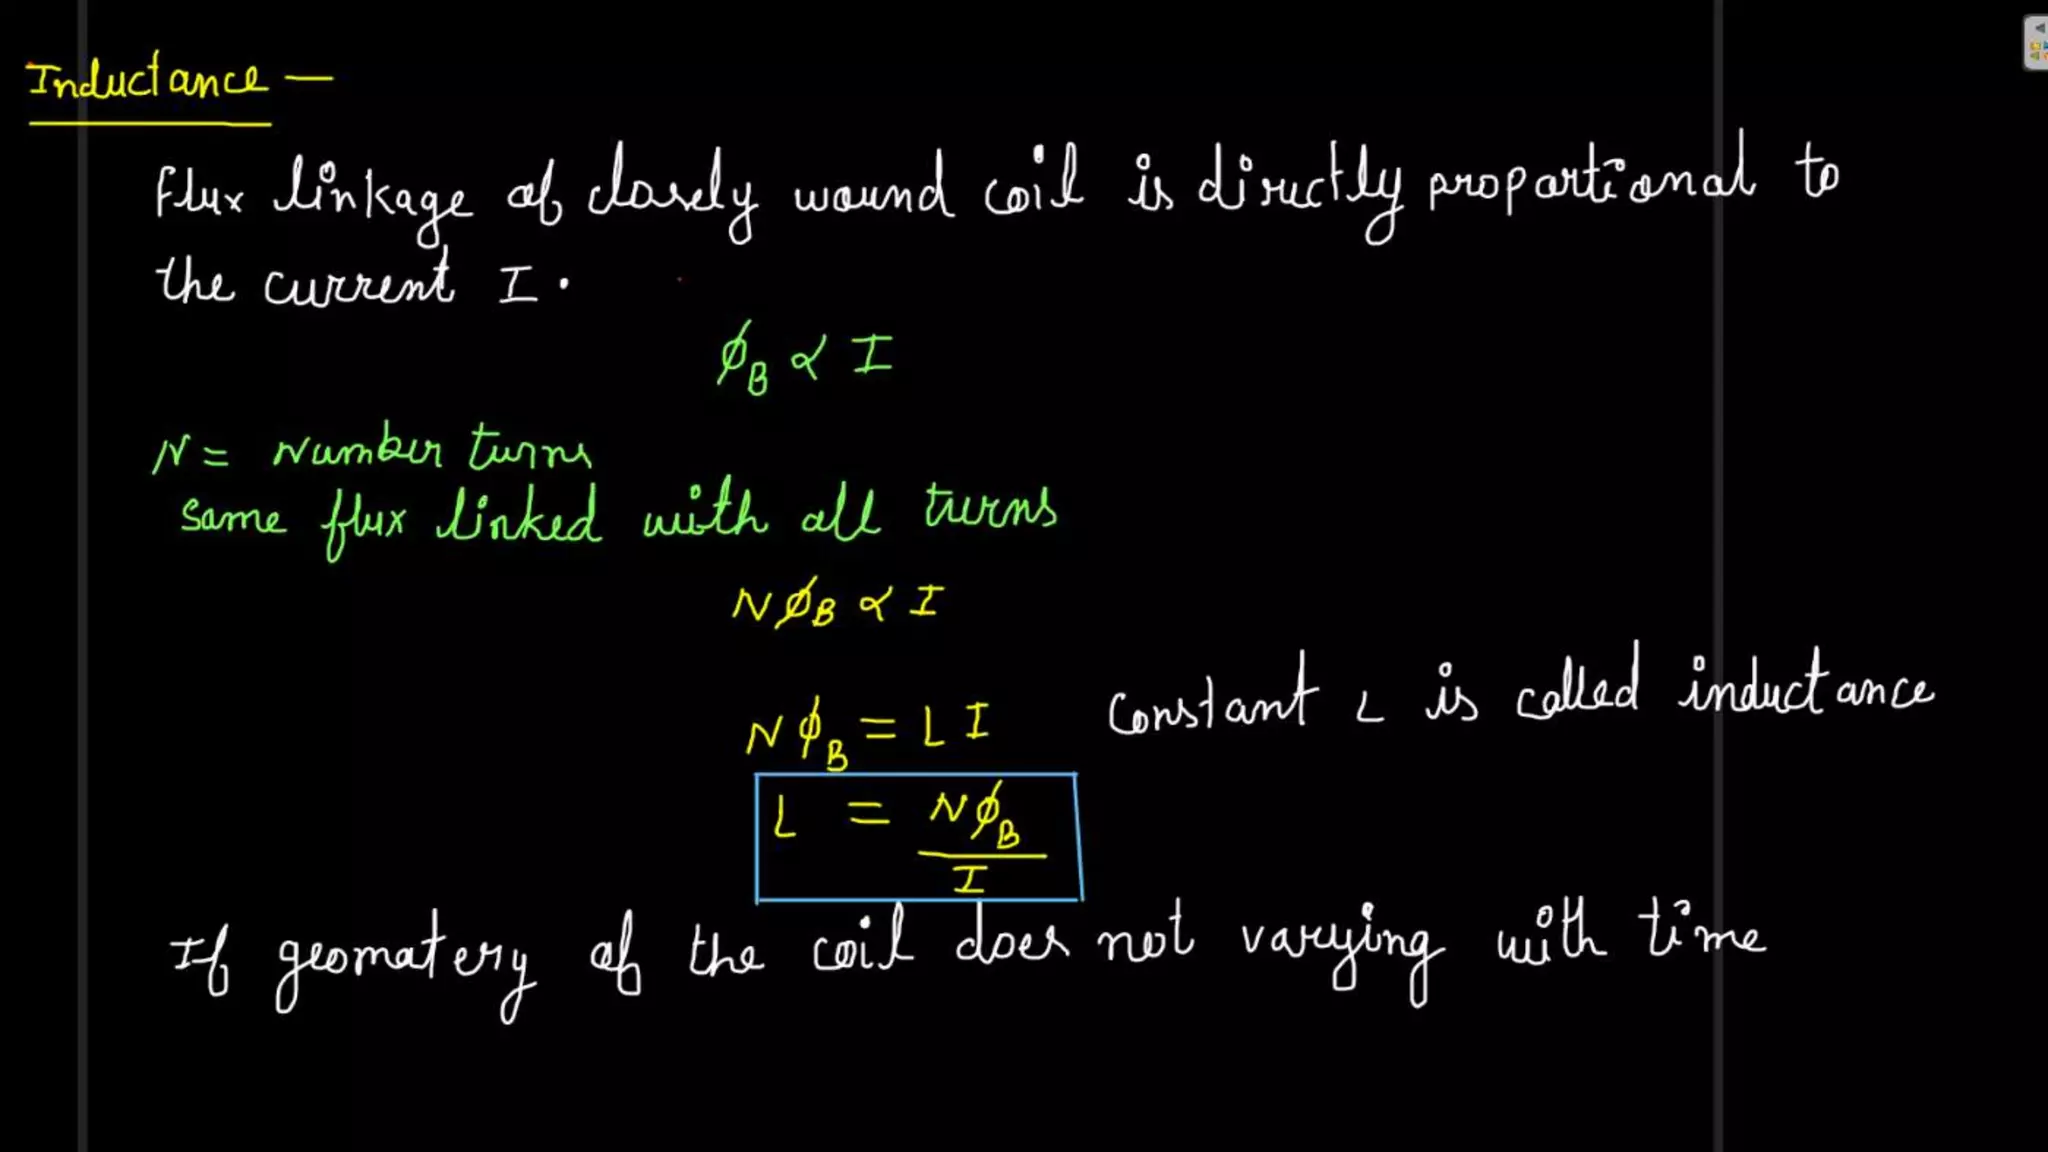 Inductance —
Flux linkage of closely wound coil is directly proportional to
the current I.
ϕ_B ∝ I
N = Number turns
same flux linked with all turns
Nϕ_B ∝ I
Nϕ_B = L I
constant L is called inductance
L = Nϕ_B / I
If geomatery of the coil does not varying with time